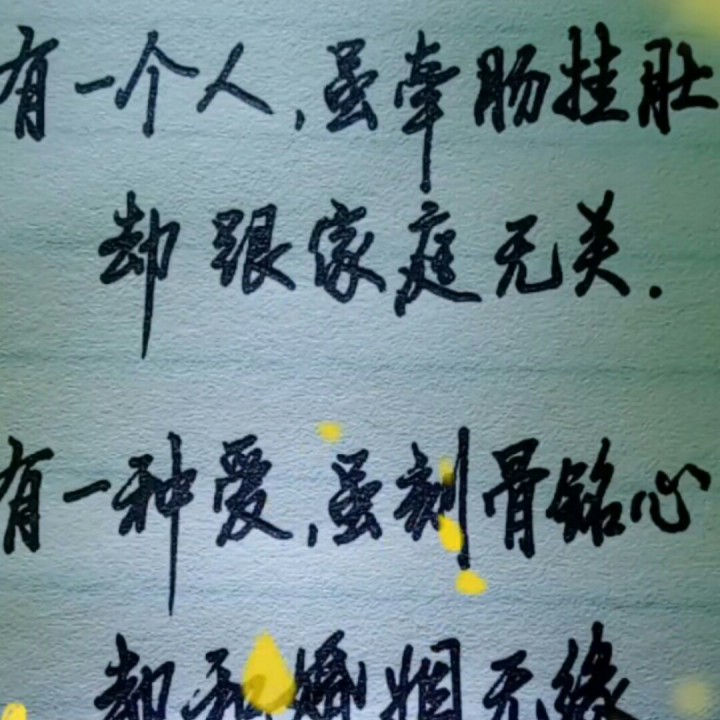 有一个人,虽牵肠挂肚
却跟家庭无关.
有一种爱,虽刻骨铭心
却和婚姻无缘